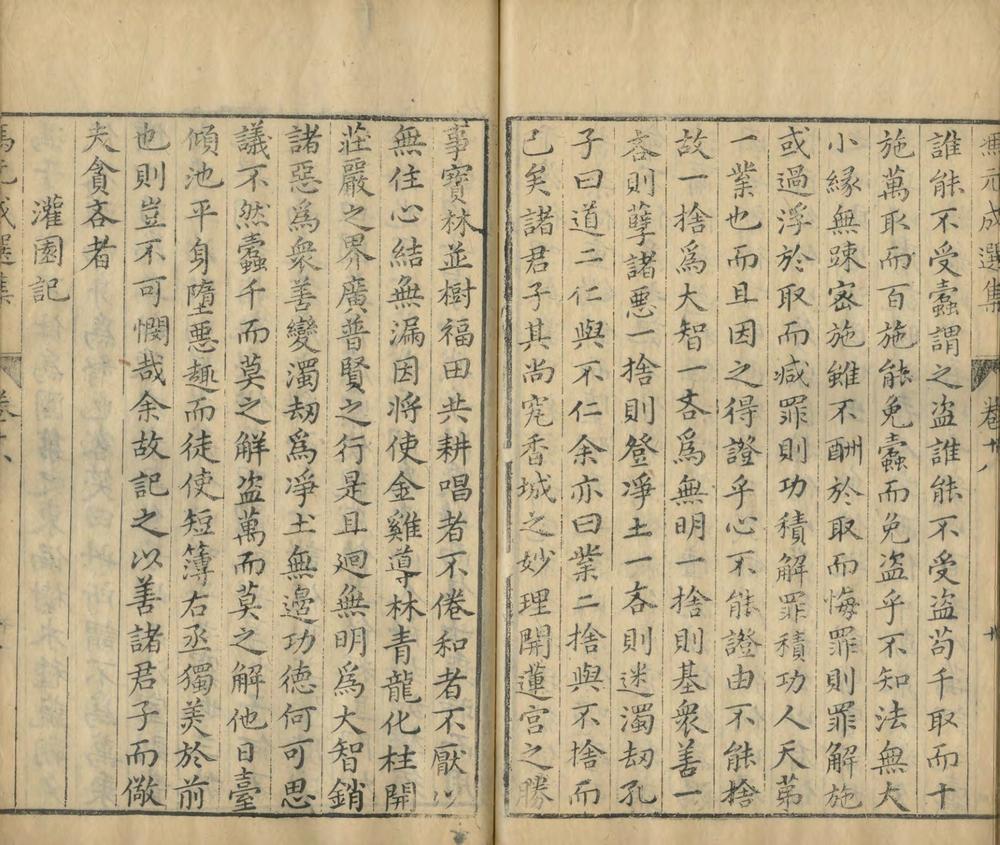 馮元成選集 卷廿八
誰能不受蠹謂之盜誰能不受盜苟千取而十
施萬取而百施能免蠹而免盜乎不知法無大
小緣無踈密施雖不酬於取而悔罪則罪解施
或過浮於取而减罪則功積解罪積功人天苐
一業也而且因之得證乎心不能證由不能捨
故一捨爲大智一吝爲無明一捨則基衆善一
吝則孽諸惡一捨則登凈土一吝則迷濁刼孔
子曰道二仁與不仁余亦曰業二捨與不捨而
已矣諸君子其尚究香城之妙理開蓮宮之勝
事寶林並樹福田共耕唱者不倦和者不厭以
無住心結無漏因將使金雞導林青龍化柱開
莊嚴之界廣普賢之行是且廻無明爲大智銷
諸惡爲衆善變濁刼爲凈土無邊功德何可思
議不然蠹千而莫之解盜萬而莫之解他日臺
傾池平身墮惡趣而徒使短簿右丞獨美於前
也則豈不可憫哉余故記之以善諸君子而儆
夫貪吝者
灌園記
馮元成選集